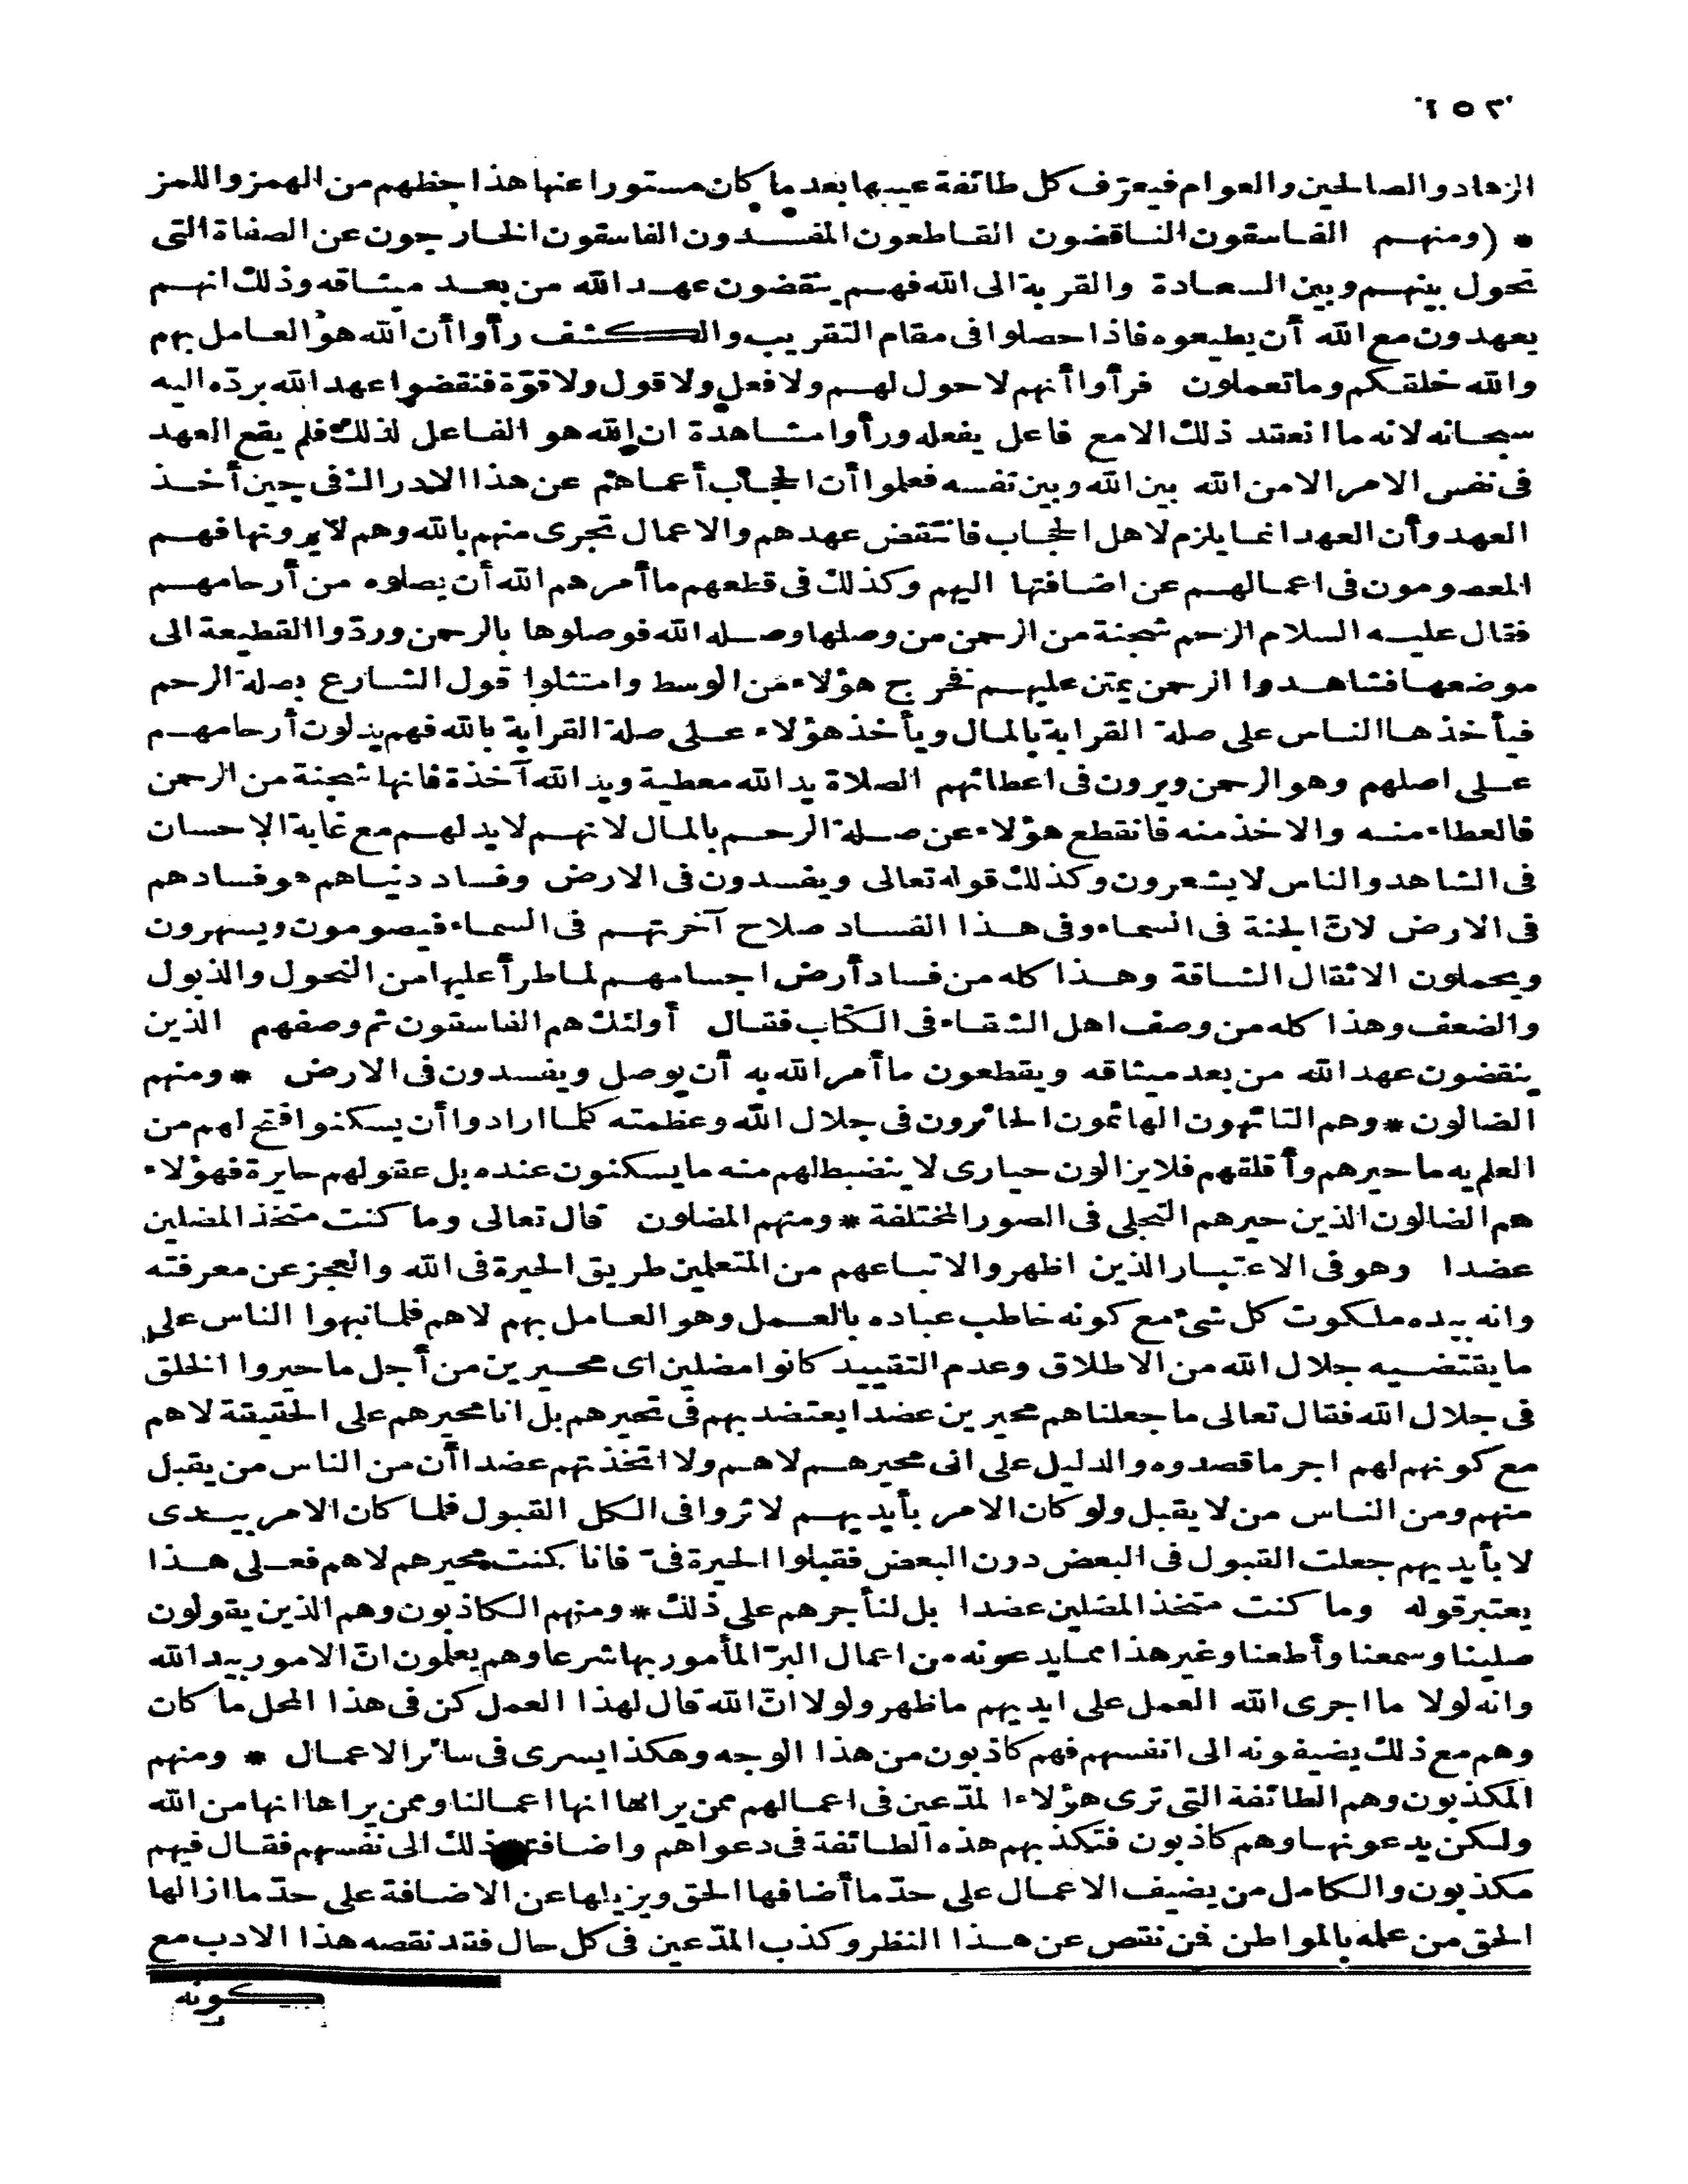 الزهاد والصالحين والعوام فيعرّف كل طائفة عيبها بعد ما كان مستورا عنها هذا حظهم من الهمز واللمز
* (ومنهم الفاسقون الناقضون القاطعون المفسدون الفاسقون الخارجون عن الصفاة التى
تحول بينهم وبين السعادة والقربة الى الله فهم ينقضون عهد الله من بعد ميثاقه وذلك انهم
يعهدون مع الله أن يطيعوه فاذا حصلوا فى مقام التقريب والكشف رأوا أن الله هو العامل بهم
والله خلقكم وما تعملون فرأوا أنهم لا حول لهم ولا فعل ولا قول ولا قوّة فنقضوا عهد الله بردّه اليه
سبحانه لانه ما انعقد ذلك الا مع فاعل يفعله ورأوا مشاهدة ان الله هو الفاعل لذلك فلم يقع العهد
فى نفس الامر الا من الله بين الله وبين نفسه فعلموا أن الحجاب أعماهم عن هذا الادراك فى حين أخذ
العهد وأن العهد انما يلزم لاهل الحجاب فانتقض عهدهم والاعمال تجرى منهم بالله وهم لا يرونها فهم
المعصومون فى اعمالهم عن اضافتها اليهم وكذلك فى قطعهم ما أمرهم الله أن يصلوه من أرحامهم
فقال عليه السلام الرحم شجنة من الرحمن من وصلها وصله الله فوصلوها بالرحمن وردّوا القطيعة الى
موضعها فشاهدوا الرحمن يمتن عليهم فخرج هؤلاء من الوسط وامتثلوا قول الشارع بصلة الرحم
فيأخذها الناس على صلة القرابة بالمال ويأخذ هؤلاء على صلة القرابة بالله فهم يدلون أرحامهم
على اصلهم وهو الرحمن ويرون فى اعطائهم الصلاة يد الله معطية ويد الله آخذة فانها شجنة من الرحمن
فالعطاء منه والاخذ منه فانقطع هؤلاء عن صلة الرحم بالمال لانهم لا يد لهم مع غاية الاحسان
فى الشاهد والناس لا يشعرون وكذلك قوله تعالى ويفسدون فى الارض وفساد دنياهم هو فسادهم
فى الارض لانّ الجنة فى السماء وفى هذا الفساد صلاح آخرتهم فى السماء فيصومون ويسهرون
ويحملون الاثقال الشاقة وهذا كله من فساد أرض اجسامهم لما طرأ عليها من النحول والذبول
والضعف وهذا كله من وصف اهل الشقاء فى الكتاب فقال أولئك هم الفاسقون ثم وصفهم الذين
ينقضون عهد الله من بعد ميثاقه ويقطعون ما أمر الله به أن يوصل ويفسدون فى الارض * ومنهم
الضالون * وهم التائهون الهائمون الحائرون فى جلال الله وعظمته كلما ارادوا أن يسكنوا فتح لهم من
العلم به ما حيرهم وأقلقهم فلا يزالون حيارى لا ينضبط لهم منه ما يسكنون عنده بل عقولهم حايرة فهؤلاء
هم الضالون الذين حيرهم التجلى فى الصور المختلفة * ومنهم المضلون قال تعالى وما كنت متخذ المضلين
عضدا وهو فى الاعتبار الذين اظهروا لاتباعهم من المتعلمين طريق الحيرة فى الله والعجز عن معرفته
وانه بيده ملكوت كل شئ مع كونه خاطب عباده بالعمل وهو العامل بهم لا هم فلما نبهوا الناس على
ما يقتضيه جلال الله من الاطلاق وعدم التقييد كانوا مضلين اى محيرين من أجل ما حيروا الخلق
فى جلال الله فقال تعالى ما جعلناهم محيرين عضدا يعتضد بهم فى تحيرهم بل انا محيرهم على الحقيقة لا هم
مع كونهم لهم اجر ما قصدوه والدليل على انى محيرهم لا هم ولا اتخذتهم عضدا أن من الناس من يقبل
منهم ومن الناس من لا يقبل ولو كان الامر بأيديهم لاثروا فى الكل القبول فلما كان الامر بيدى
لا بأيديهم جعلت القبول فى البعض دون البعض فقبلوا الحيرة فىّ فانا كنت محيرهم لا هم فعلى هذا
يعتبر قوله وما كنت متخذ المضلين عضدا بل لنأجرهم على ذلك * ومنهم الكاذبون وهم الذين يقولون
صلينا وسمعنا وأطعنا وغير هذا مما يدعونه من اعمال البرّ المأمور بها شرعا وهم يعلمون انّ الامور بيد الله
وانه لولا ما اجرى الله العمل على ايديهم ما ظهر ولولا انّ الله قال لهذا العمل كن فى هذا المحل ما كان
وهم مع ذلك يضيفونه الى انفسهم فهم كاذبون من هذا الوجه وهكذا يسرى فى سائر الاعمال * ومنهم
المكذبون وهم الطائفة التى ترى هؤلاء المدّعين فى اعمالهم ممن يراها انها اعمالنا وممن يراها انها من الله
ولكن يدعونها وهم كاذبون فتكذبهم هذه الطائفة فى دعواهم واضافة ذلك الى نفسهم فقال فيهم
مكذبون والكامل من يضيف الاعمال على حدّ ما أضافها الحق ويزيلها عن الاضافة على حدّ ما ازالها
الحق من علمه بالمواطن فمن نقص عن هذا النظر وكذب المدّعين فى كل حال فقد نقصه هذا الادب مع
كونه